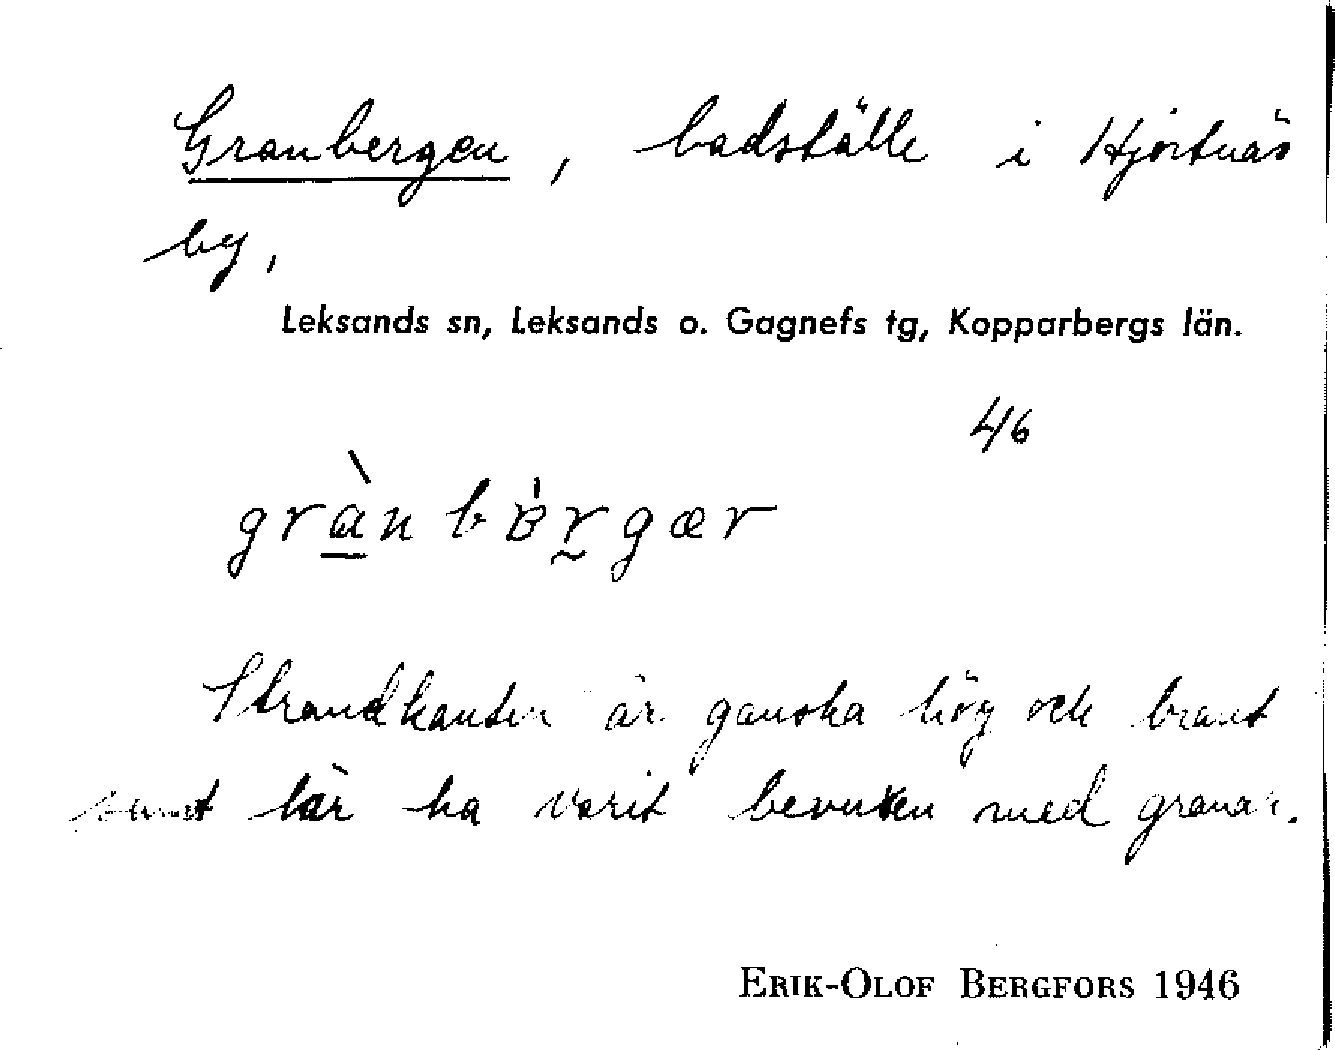 Granbergen, badställe i Hjortnäs
by,
Leksands sn, Leksands o. Gagnefs tg, Kopparbergs län.
46
gràn bèrgær
Strandkanten är ganska hög och brant
samt lär ha varit bevuxen med granar.
ERIK-OLOF BERGFORS 1946